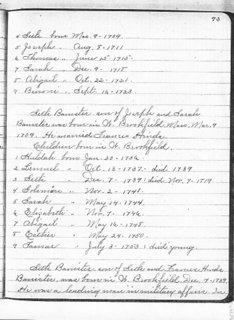 73
4 Seth born Mar. 9 - 1709.
5 Joseph " Aug. 5 - 1711
6 Thomas " June 15 - 1715
7 Sarah " Dec. 9 - 1718
8 Abigail " Oct. 22 - 1721
9 Benoni " Sept. 14 - 1723
Seth Banister, son of Joseph and Sarah
Banister was born in W. Brookfield Mass. Mar. 9
1709. He married Frances Hinds.
Children born in W. Brookfield.
1 Huldah born Jan. 22 - 1736
2 Lemuel " Oct. 13 - 1737 - died 1739
3 Seth " Dec. 7 - 1739; died Nov. 7 - 1819
4 Solomon " Nov. 2 - 1741
5 Sarah " May 14 - 1744
6 Elizabeth " Nov. 7 - 1746
7 Abigail " May 16 - 1748
8 Esther " May 24 - 1750
9 Tamar " July 3 - 1753; died young.
Seth Banister, son of Seth and Frances Hinds
Banister, was born in W. Brookfield, Dec. 7 - 1739.
He was a leading man in military affairs. In